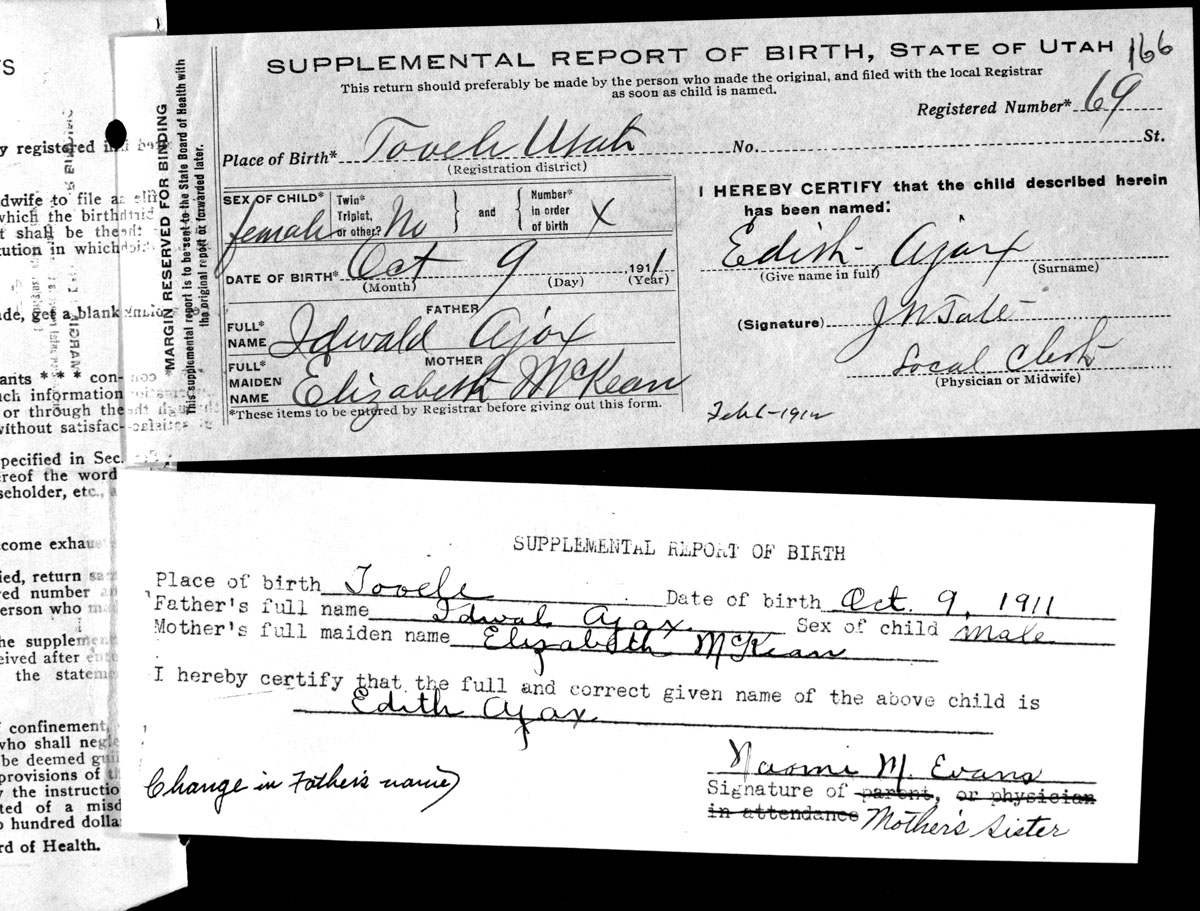 TS
y registered in
dwife to file a
which the birth
t shall be the
tution in which
de, get a blank
ants * * * con-
ch information
or through the
without satisfac-
pecified in Sec.
reof the word
seholder, etc.,
come exhau
ied, return sa
red number
erson who m
he supplem
eived after
the statem
f confinement,
who shall neg
be deemed gui
provisions of t
y the instructio
ted of a misd
o hundred dolla
rd of Health.
MARGIN RESERVED FOR BINDING
This supplemental report is to be sent to the State Board of Health with
the original report or forwarded later.
SUPPLEMENTAL REPORT OF BIRTH, STATE OF UTAH 166
This return should preferably be made by the person who made the original, and filed with the local Registrar
as soon as child is named.
Registered Number* 69
Place of Birth* Tooele Utah No. St.
(Registration district)
SEX OF CHILD* female Twin* Triplet, or other? No and Number* in order of birth X
DATE OF BIRTH* Oct 9 1911
(Month) (Day) (Year)
FATHER
FULL* NAME Idwald Ajax
MOTHER
FULL* MAIDEN NAME Elizabeth McKean
*These items to be entered by Registrar before giving out this form.
I HEREBY CERTIFY that the child described herein
has been named:
Edith Ajax
(Give name in full) (Surname)
(Signature) J N Tate
Local Clerk
(Physician or Midwife)
Feb 6-1912
SUPPLEMENTAL REPORT OF BIRTH
Place of birth Tooele Date of birth Oct. 9, 1911
Father's full name Idwal Ajax. Sex of child Male
Mother's full maiden name Elizabeth McKean
I hereby certify that the full and correct given name of the above child is
Edith Ajax.
Naomi M. Evans
Signature of parent, or physician
in attendance Mother's Sister
(Change in Father's name)